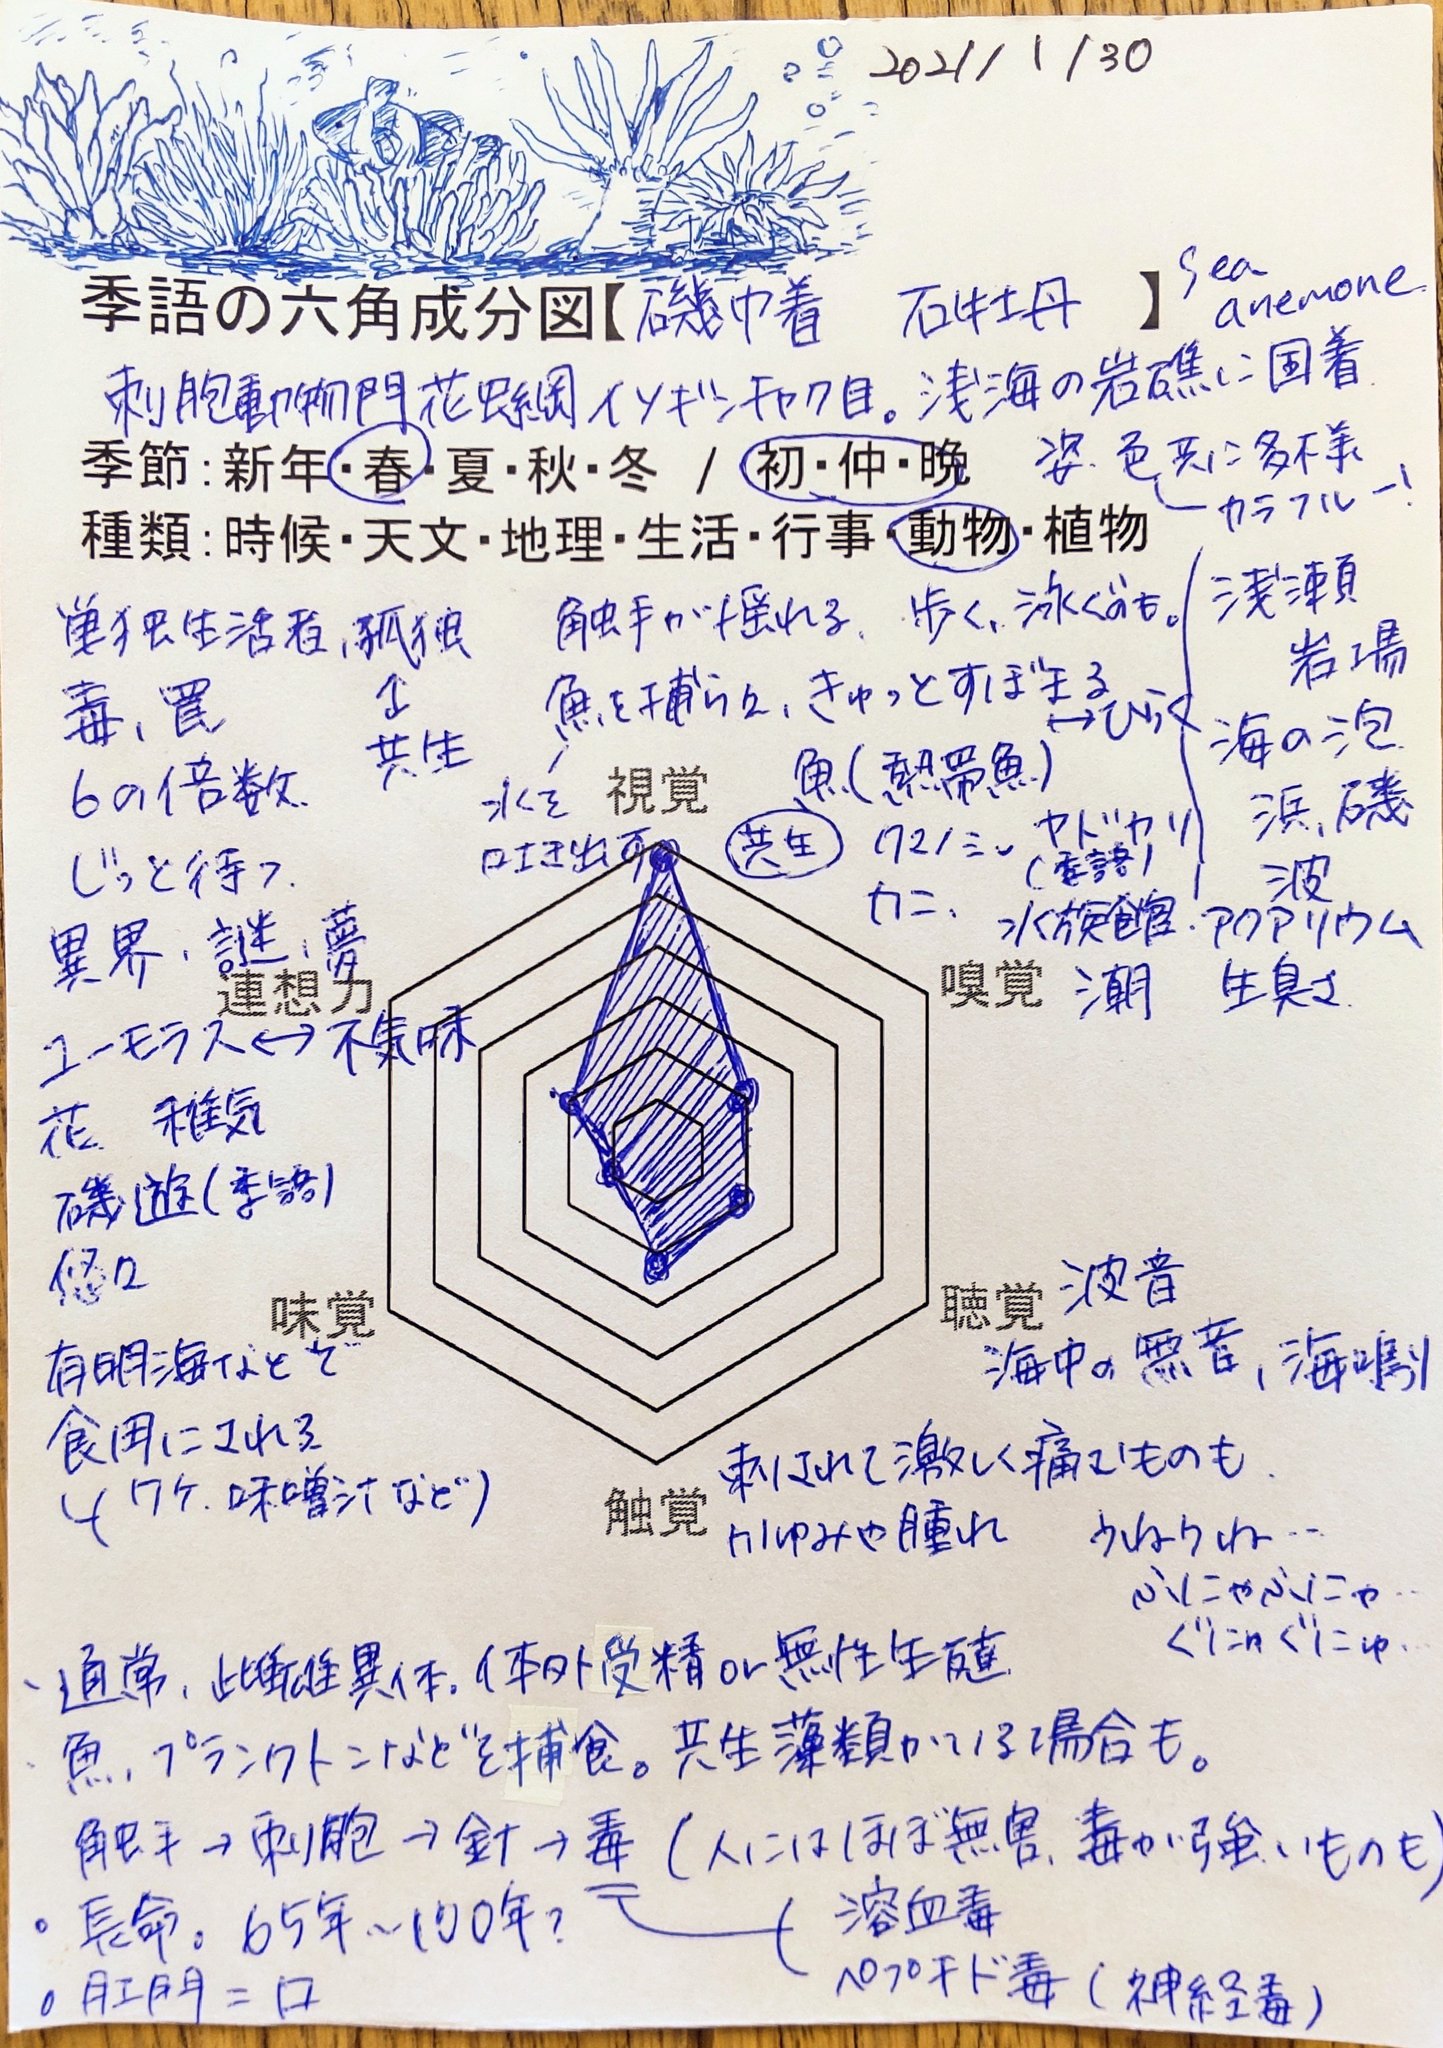 2021/1/30
季語の六角成分図【磯巾着 石牡丹 】
sea
anemone
刺胞動物門花虫綱イソギンチャク目。浅海の岩礁に固着
季節:新年・春・夏・秋・冬 / 初・仲・晩
姿、色共に多様
カラフルー!
種類:時候・天文・地理・生活・行事・動物・植物
単独生活者、孤独
↕
共生
毒、罠
6の倍数
じっと待つ
異界、謎、夢
連想力
ユーモラス↔不気味
花 稚気
磯遊(季語)
悠久
触手が揺れる、歩く、泳ぐのも。
魚を捕らえ、きゅっとすぼまる
↔ひらく
水を
吐き出す
視覚
魚(熱帯魚)
共生
クマノミ、ヤドカリ
(季語)
カニ、
水族館・アクアリウム
浅瀬
岩場
海の泡
浜、磯
波
嗅覚
潮 生臭さ
聴覚
波音
海中の無音、海鳴り
味覚
有明海などで
食用にされる
(ワケ、味噌汁など)
触覚
刺されて激しく痛むものも
かゆみや腫れ
うねうね…
ふにゃふにゃ…
ぐにゅぐにゅ…
、通常、雌雄異体。体外受精or無性生殖
・魚、プランクトンなどを捕食。共生藻類がいる場合も。
触手→刺胞→針→毒(人にはほぼ無害、毒が強いものも)
溶血毒
ペプチド毒(神経毒)
。長命。65年~100年?
。肛門=口